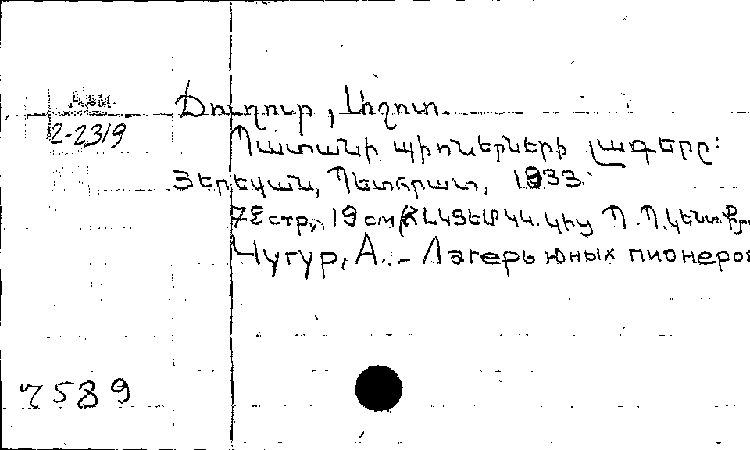 Арм.
2-2319
Չուգուր, Աշոտ.
Պատանի պիոներների լագերը:
Յերեվան, Պետհրատ, 1933.
72 стр., 19 см ՀԼԿՅԵՄ ԿԿ. կից Պ. Պ. կենտ. բյու
Чугур, А. - Лагерь юных пионеров
7589